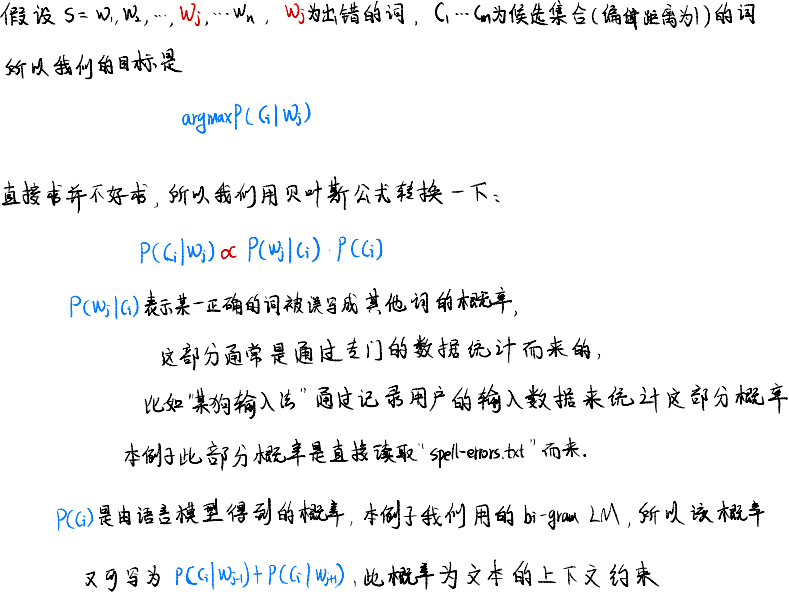 假设 S = w₁, w₂, ⋯, wⱼ, ⋯ wₙ , wⱼ为出错的词, C₁ ⋯ Cₘ为候选集合(编辑距离为1)的词
所以我们的目标是
argmaxP(Cᵢ|wⱼ)
直接求并不好求, 所以我们用贝叶斯公式转换一下:
P(Cᵢ|wⱼ) ∝ P(wⱼ|Cᵢ) · P(Cᵢ)
P(wⱼ|Cᵢ)表示某一正确的词被误写成其他词的概率,
这部分通常是通过专门的数据统计而来的,
比如"某狗输入法"通过记录用户的输入数据来统计这部分概率
本例子此部分概率是直接读取"spell-errors.txt"而来.
P(Cᵢ)是由语言模型得到的概率, 本例子我们用的 bi-gram LM, 所以该概率
又可写为 P(Cᵢ|wⱼ₋₁)+P(Cᵢ|wⱼ₊₁), 此概率为文本的上下文约束